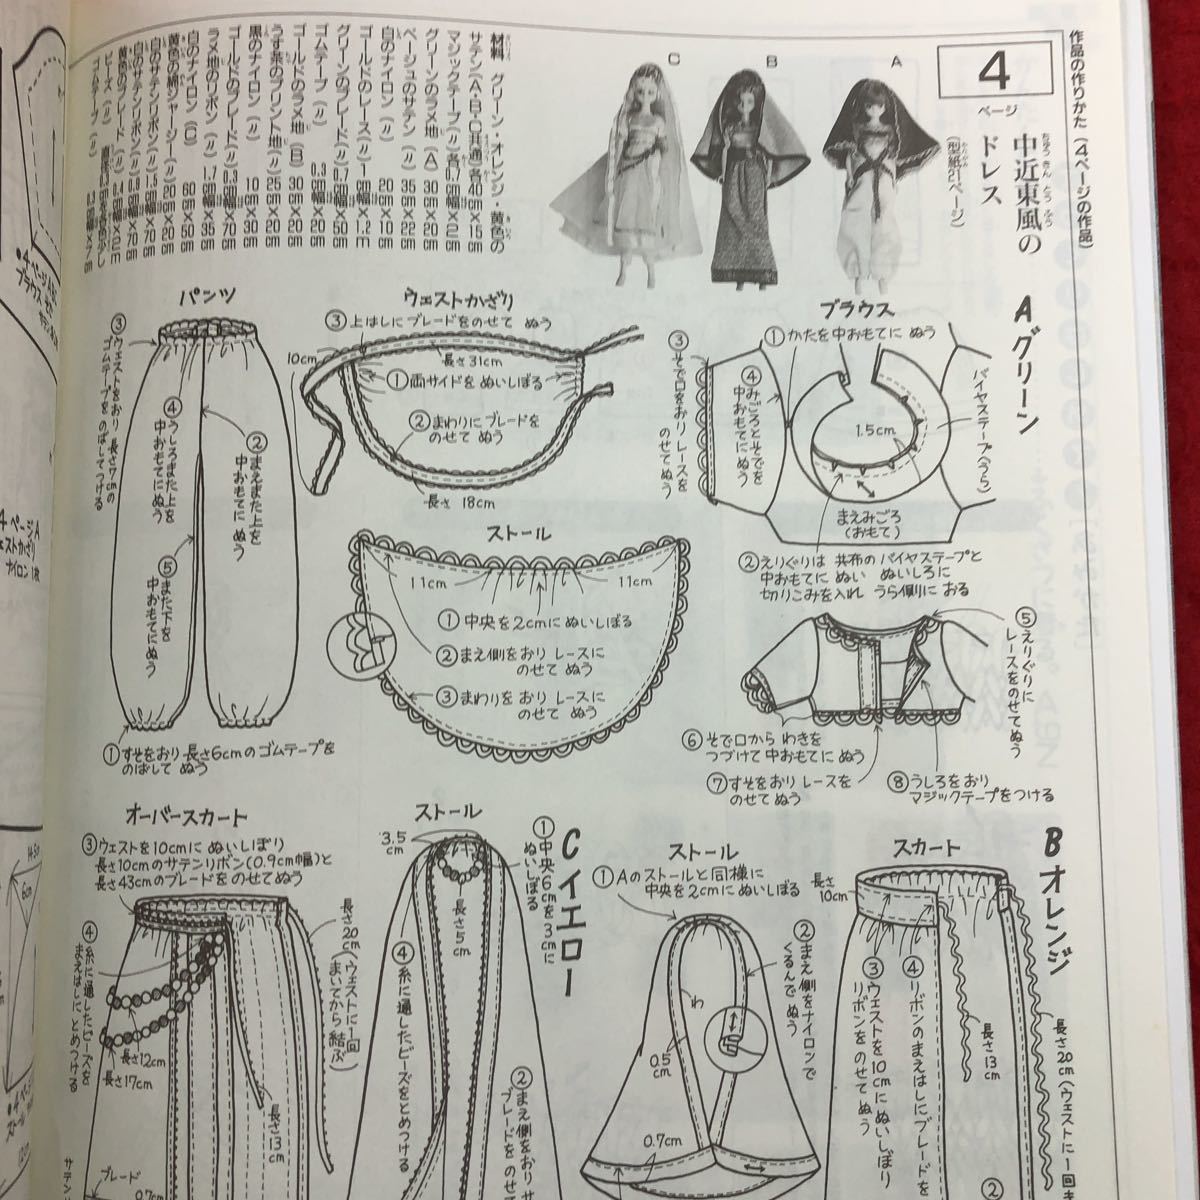 作品の作りかた(4ページの作品)
4
ページ
中近東風の
ドレス
(型紙21ページ)
A
B
C
材料 グリーン・オレンジ・黄色の
サテン(A・B・C共通)各40cm×15cm
マジックテープ(〃)各0.7cm幅×2cm
グリーンのラメ地(A)30cm×20cm
ベージュのサテン(〃)35cm×22cm
白のナイロン(〃)20cm×10cm
ゴールドのレース(〃)1cm幅×1.2m
グリーンのブレード(〃)0.7cm幅×50cm
ゴムテープ(〃)0.3cm幅×20cm
ゴールドのラメ地(B)30cm×20cm
うす茶のプリント地(〃)25cm×20cm
黒のナイロン(〃)10cm×30cm
ゴールドのブレード(〃)0.3cm幅×70cm
ラメ地のリボン(〃)1.7cm幅×35cm
白のナイロン(C)60cm×50cm
黄色の綿ジャージー(〃)20cm×20cm
Aグリーン
ブラウス
①かたを中おもてに ぬう
バイヤステープ(うら)
1.5cm
まえみごろ
(おもて)
②えりぐりは 共布の バイヤステープと
中おもてに ぬい ぬいしろに
切りこみを入れ うら側に おる
③そで口をおり レースを
のせて ぬう
④みごろとそでを
中おもてにぬう
⑤えりぐりに
レースをのせてぬう
⑥そで口から わきを
つづけて 中おもてに ぬう
⑦すそをおり レースを
のせて ぬう
⑧うしろをおり
マジックテープをつける
ウェストかざり
③上はしにブレードをのせて ぬう
10cm
長さ31cm
①両サイドを ぬいしぼる
②まわりにブレードを
のせて ぬう
長さ 18cm
パンツ
③ウェストをおり 長さ7.5cmの
ゴムテープを のばしてつける
④うしろまた上を
中おもてにぬう
②まえまた上を
中おもてに ぬう
⑤また下を
中おもてにぬう
①すそをおり 長さ6cmのゴムテープを
のばして ぬう
ストール
11cm
11cm
①中央を2cmに ぬいしぼる
②まえ側をおり レースに
のせて ぬう
③まわりを おり レースに
のせて ぬう
Bオレンジ
スカート
長さ
10cm
③ウェストを10cmに ぬいしぼり
リボンを のせて ぬう
④リボンのまえはしにブレードを
長さ
13cm
長さ20cm(ウェストに1回
②
ストール
①Aのストールと 同様に
中央を2cmに ぬいしぼる
②まえ側をナイロンで
くるんで ぬう
わ
0.5
cm
0.7cm
Cイエロー
ストール
3.5
cm
①中央6cmを3cmに
ぬいしぼる
長さ5cm
④糸に通したビーズをとめつける
②まえ側をおり
ブレードを のせ
オーバースカート
③ウェストを10cmに ぬいしぼり
長さ10cmのサテンリボン(0.9cm幅)と
長さ43cmのブレードを のせて ぬう
④糸に通したビーズを
まえはしに とめつける
長さ12cm
長さ17cm
長さ
13cm
長さ
20cm(ウェストに1回
まいてから 結ぶ)
ブレード
0.7cm